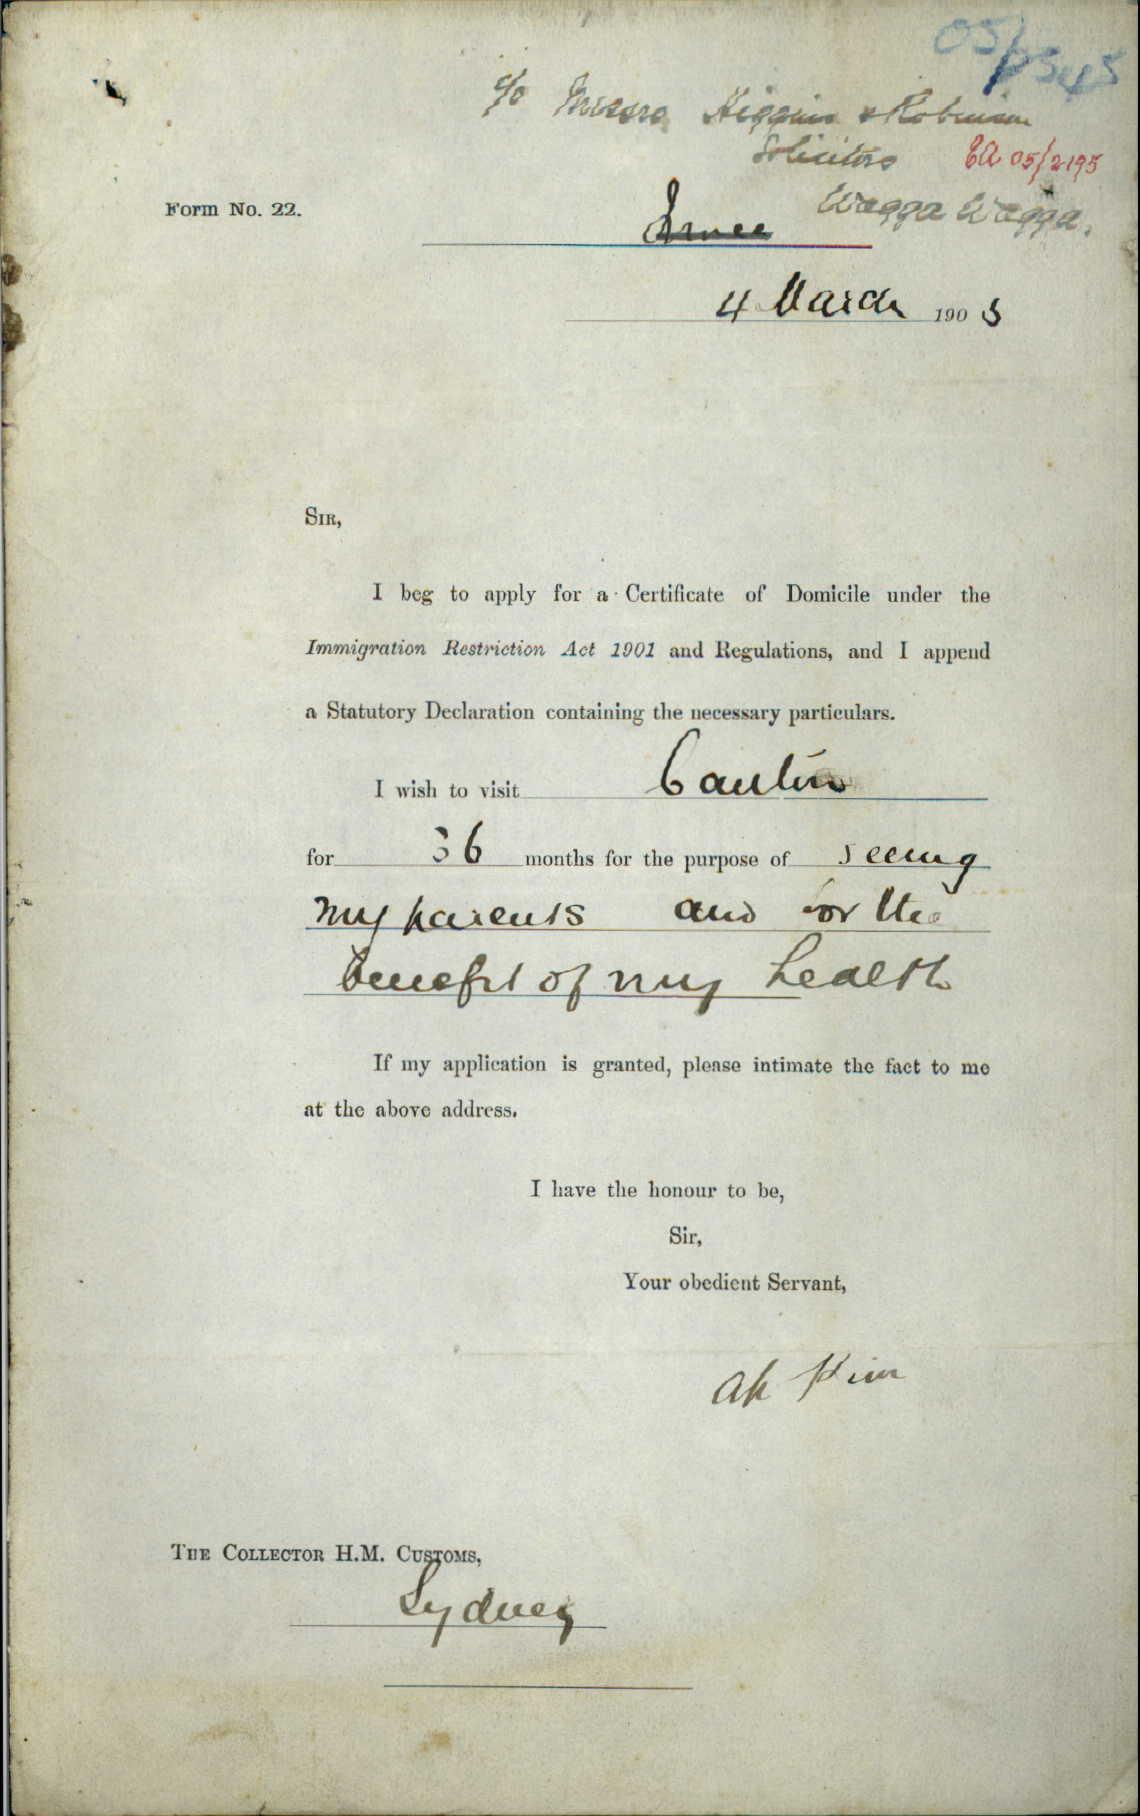 05/
c/o Messrs Higgins & Robinson
Solicitors
EA 05/2195
Wagga Wagga.
Form No. 22.
4 March 1905
SIR,
I beg to apply for a Certificate of Domicile under the
Immigration Restriction Act 1901 and Regulations, and I append
a Statutory Declaration containing the necessary particulars.
I wish to visit Canton
for 36 months for the purpose of seeing
my parents and for the
benefit of my health
If my application is granted, please intimate the fact to me
at the above address.
I have the honour to be,
Sir,
Your obedient Servant,
Ah Kim
THE COLLECTOR H.M. CUSTOMS,
Sydney